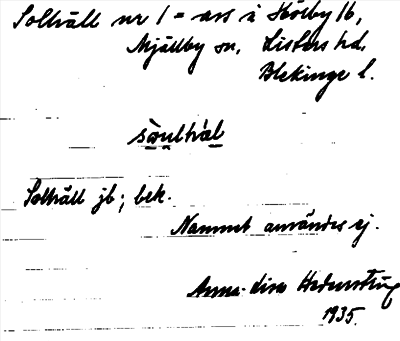 Solhäll nr 1 = avs å Hörby 16,
Mjällby sn, Listers hd.
Blekinge l.
sọ̀ụlhạ̀l
Solhäll jb; bek.
Namnet användes ej.
Anna-Lisa
1935.